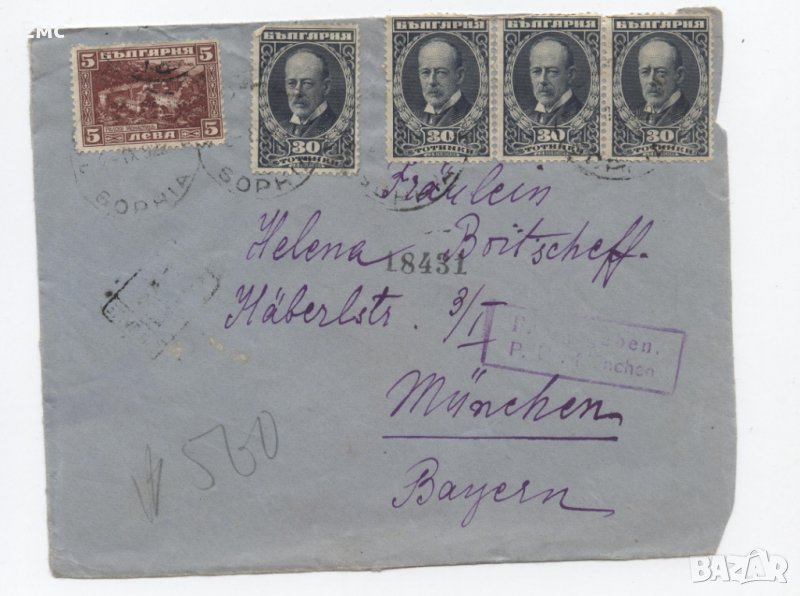 ЕМС
5 БЪЛГАРИЯ 5
5 ЛЕВА 5
БЪЛГАРИЯ
30
СТОТИНКИ
БЪЛГАРИЯ
30
СТОТИНКИ
БЪЛГАРИЯ
30
СТОТИНКИ
БЪЛГАРИЯ
30
СТОТИНКИ
SOPHIA
Fräulein
Helena Boitscheff.
18431
Häberlstr. 3/I
München
Bayern
560
BAZAR